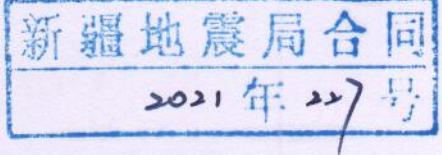 新疆地震局合同
2021年227号